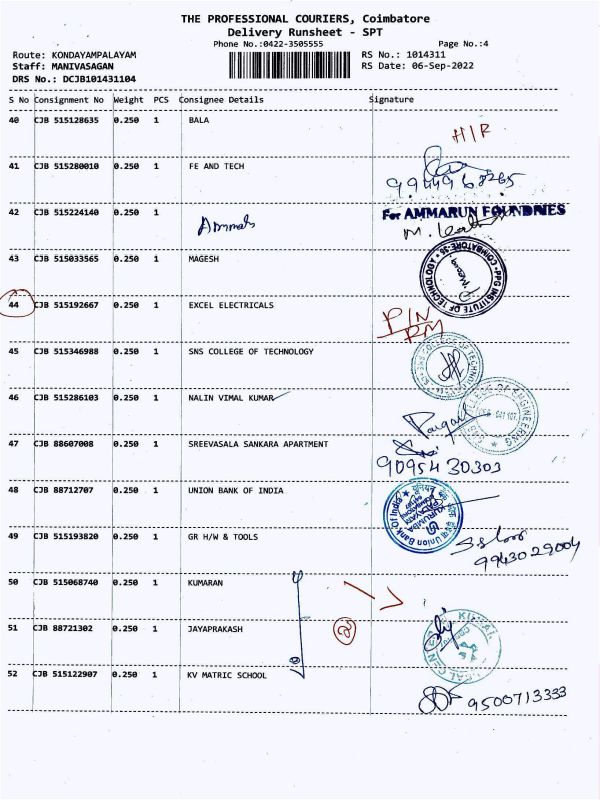 THE PROFESSIONAL COURIERS, Coimbatore
Delivery Runsheet - SPT
Phone No.:0422-3505555 Page No.:4
Route: KONDAYAMPALAYAM RS No.: 1014311
Staff: MANIVASAGAN RS Date: 06-Sep-2022
DRS No.: DCJB101431104
S No Consignment No Weight PCS Consignee Details Signature
40 CJB 515128635 0.250 1 BALA
H/R
41 CJB 515280010 0.250 1 FE AND TECH
42 CJB 515224140 0.250 1 For AMMARUN FOUNDRIES
43 CJB 515033565 0.250 1 MAGESH
PPG INSTITUTE OF TECHNOLOGY COIMBATORE-35
44 CJB 515192667 0.250 1 EXCEL ELECTRICALS
45 CJB 515346988 0.250 1 SNS COLLEGE OF TECHNOLOGY
46 CJB 515286103 0.250 1 NALIN VIMAL KUMAR
47 CJB 88607008 0.250 1 SREEVASALA SANKARA APARTMENT
9095430303
48 CJB 88712707 0.250 1 UNION BANK OF INDIA
Union Bank Of India
49 CJB 515193820 0.250 1 GR H/W & TOOLS
9943029004
50 CJB 515068740 0.250 1 KUMARAN
51 CJB 88721302 0.250 1 JAYAPRAKASH
52 CJB 515122907 0.250 1 KV MATRIC SCHOOL
9500713333